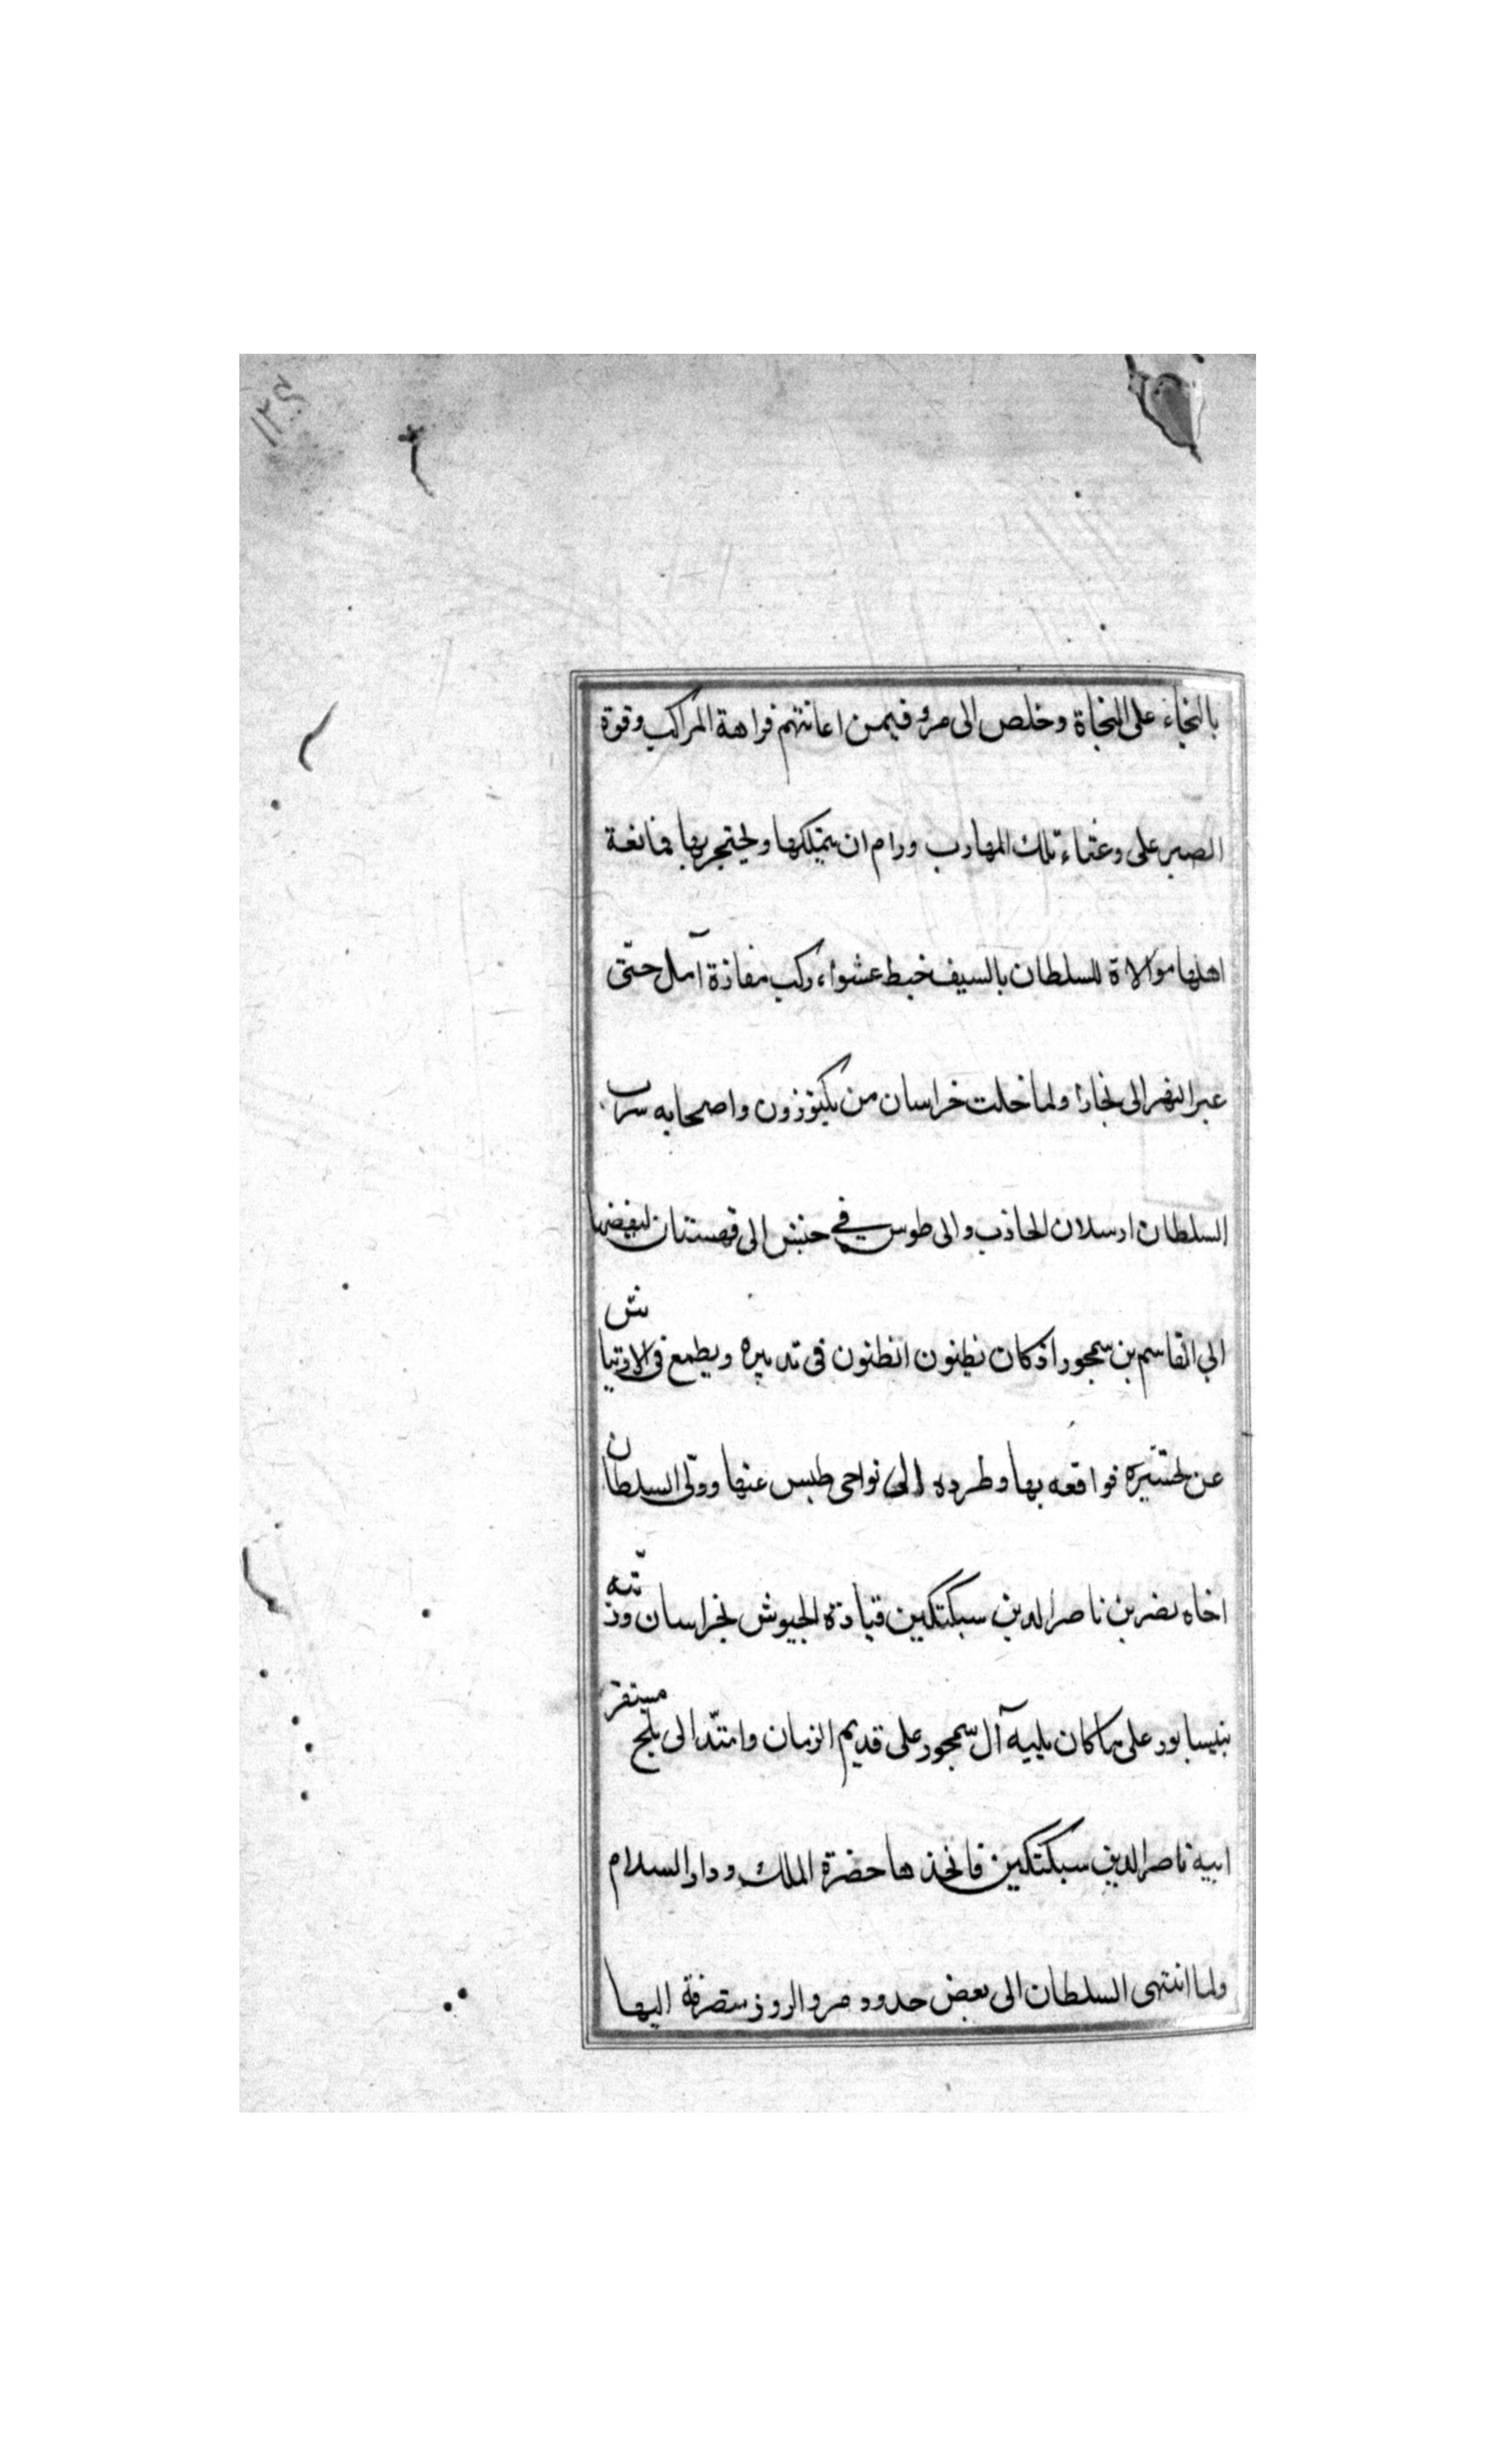 ۱۲۴
بالنجاء على النجاة وخلص الى مرو فيمن اعانتهم فراهة المراكب وقوة
الصبر على وعثاء تلك المهارب ورام ان يتملكها ويحتجر بها فمانعة
اهلها موالاة للسلطان بالسيف خبط عشواء ركب مفازة آمل حتّى
عبر النهر الى بخارا ولما خلت خراسان من بكتوزون واصحابه سرب
السلطان ارسلان الجاذب والى طوس في جنبش الى قهستنان لنفيضها
ابي القاسم بن سمجور اذ كان نظنون انظنون فى تدبيره ويطمع فى الارتياش
عن تحسّره فواقعه بها وطرده الى نواحى طبس عنها وولّى السلطان
اخاه نصر بن ناصر الدين سبكتكين قيادة الجيوش بخراسان ورتّبه
بنيسابور على ما كان يليه آل سمجور على قديم الزمان وامتدّ الى بلخ مستقرّ
ابيه ناصر الدين سبكتكين فاتخذها حضرة الملك ودار السلام
ولما انتهى السلطان الى بعض حدود مرو الروذ ستصرفة اليها